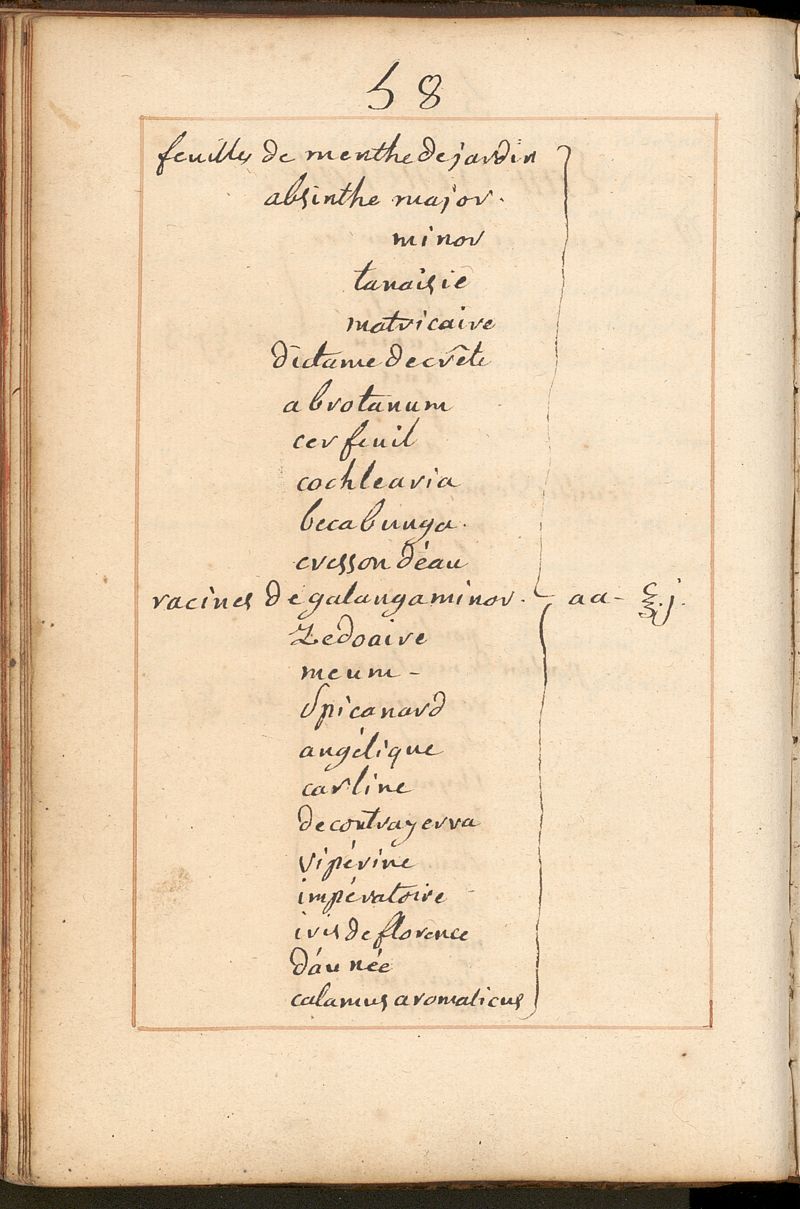 58
feuilles de menthe de jardin
absinthe major.
minor
tanaisie
matricaire
dictame de crête
abrotanum
cerfeuil
cochlearia
becabunga.
cresson d'éau
racines de galanga minor. aa - ℥.j.
Zedoaire
meum -
Spicanard
angélique
carline
de contrayerva
vipérine
impératoire
iris de florence
d'áu née
calamus aromaticus